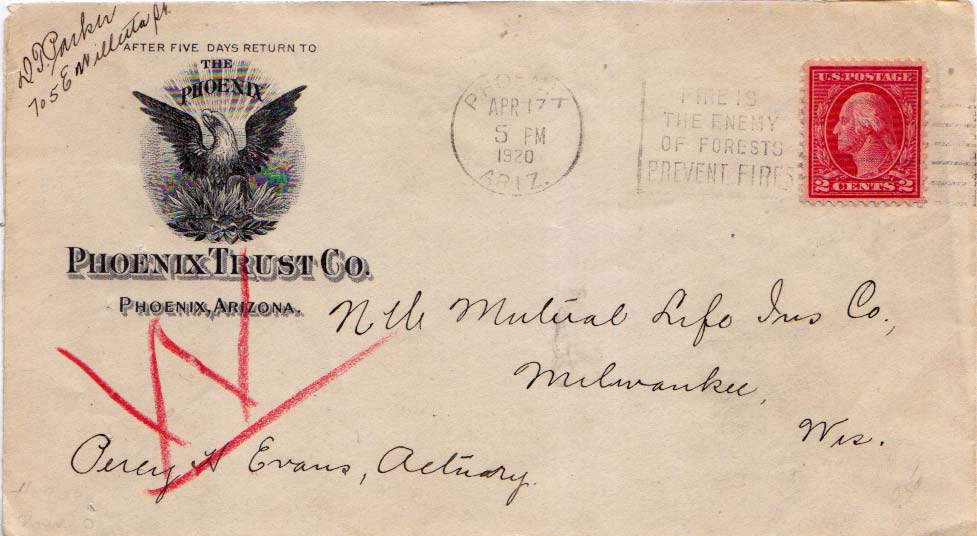 D. F. Parker
705 E Willetta St.
AFTER FIVE DAYS RETURN TO
THE
PHOENIX
PHOENIX TRUST CO.
PHOENIX, ARIZONA.
PHOENIX
APR 17
5 PM
1920
ARIZ.
FIRE IS
THE ENEMY
OF FORESTS
PREVENT FIRES
U.S. POSTAGE
2 CENTS 2
N W Mutual Life Ins Co.,
Milwaukee,
Wis.
Percy H Evans, Actuary.